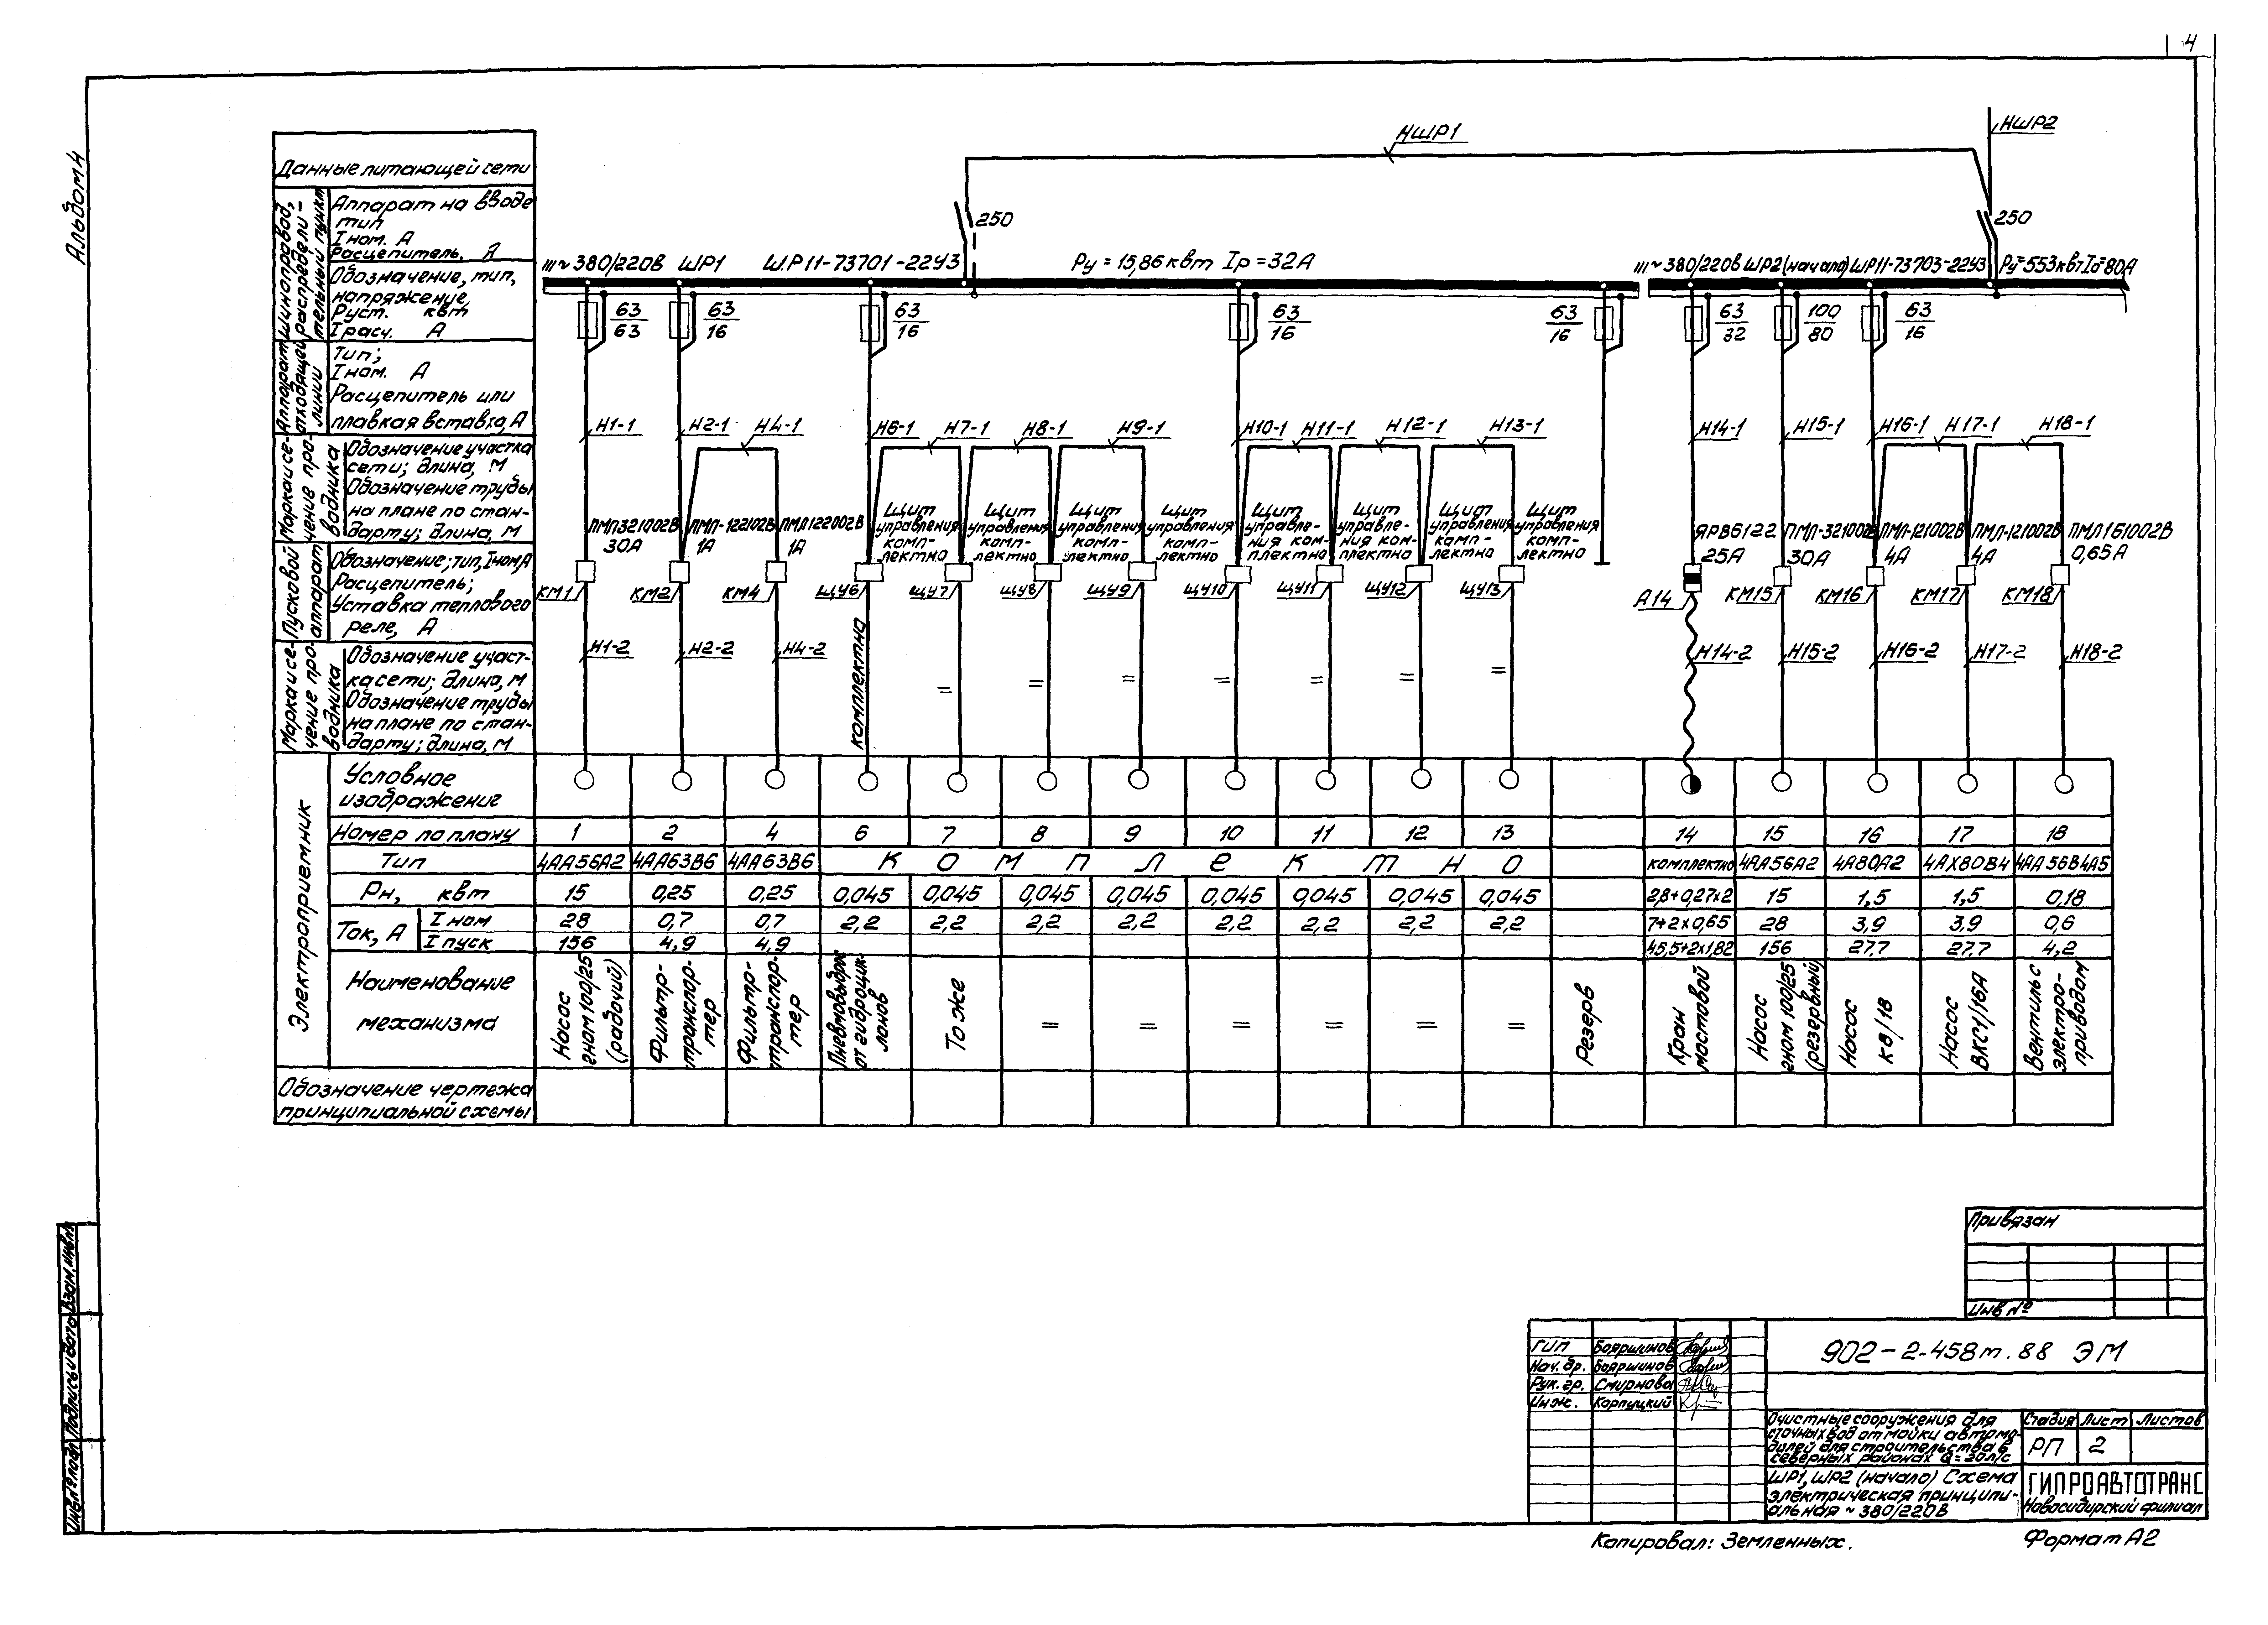 4
Альбом 4
НШР1
НШР2
250
250
Данные питающей сети
Шинопровод, распредели-
тельный пункт
Аппарат на вводе
тип
I ном. А
Расцепитель, А
Обозначение, тип,
напряжение,
Руст. квт
I расч. А
Аппарат
отходящей
линии
Тип;
I ном. А
Расцепитель или
плавкая вставка, А
Марка и се-
чение про-
водника
Обозначение участка
сети; длина, м
Обозначение трубы
на плане по стан-
дарту; длина, м
Пусковой
аппарат
Обозначение; тип, I ном, А
Расцепитель;
Уставка теплового
реле, А
Марка и се-
чение про-
водника
Обозначение участ-
ка сети; длина, м
Обозначение трубы
на плане по стан-
дарту; длина, м
III ~ 380/220В ШР1 ШР11-73701-22У3 Ру = 15,86 квт Iр = 32А
III ~ 380/220В ШР2 (начало) ШР11-73703-22У3
63 63 63 63 63 63 100 63
63 16 16 16 16 32 80 16
Н1-1 Н2-1 Н4-1 Н6-1 Н7-1 Н8-1 Н9-1 Н10-1 Н11-1 Н12-1 Н13-1 Н14-1 Н15-1 Н16-1 Н17-1 Н18-1
ПМЛ321002В
30А
ПМЛ-122102В
1А
ПМЛ122002В
1А
Щит
управления
комп-
лектно
Щит
управления
комп-
лектно
Щит
управления
комп-
лектно
Щит
управления
комп-
лектно
Щит
управле-
ния ком-
плектно
Щит
управле-
ния ком-
плектно
Щит
управления
комп-
лектно
Щит
управления
комп-
лектно
ЯРВ6122
25А
ПМЛ-321002В
30А
ПМЛ-121002В
4А
ПМЛ-121002В
4А
ПМЛ161002В
0,65А
КМ1 КМ2 КМ4 ЩУ6 ЩУ7 ЩУ8 ЩУ9 ЩУ10 ЩУ11 ЩУ12 ЩУ13 А14 КМ15 КМ16 КМ17 КМ18
Н1-2 Н2-2 Н4-2 комплектно = = = = = = = Н14-2 Н15-2 Н16-2 Н17-2 Н18-2
Электроприемник
Условное
изображениг
Номер по плану 1 2 4 6 7 8 9 10 11 12 13 14 15 16 17 18
Тип 4АА56А2 4АА63В6 4АА63В6 комплектно комплектно 4АА56А2 4А80А2 4АХ80В4 4АА56В4А5
Рн, квт 15 0,25 0,25 0,045 0,045 0,045 0,045 0,045 0,045 0,045 0,045 2,8+0,27х2 15 1,5 1,5 0,18
Ток, А
I ном 28 0,7 0,7 2,2 2,2 2,2 2,2 2,2 2,2 2,2 2,2 7+2х0,65 28 3,9 3,9 0,6
I пуск 156 4,9 4,9 45,5+2х1,82 156 27,7 27,7 4,2
Наименование
механизма
Насос
гном 100/25
(рабочий)
Фильтр-
транспор-
тер
Фильтр-
транспор-
тер
от гидроцик-
лонов
То же
= = = = = =
Резерв
Кран
мостовой
Насос
гном 100/25
(резервный)
Насос
К8/18
Насос
ВКС1/16А
Вентиль с
электро-
приводом
Обозначение чертежа
принципиальной схемы
Привязан
Инв №
ГИП Бояршинов
Нач. бр. Бояршинов
Рук. гр. Смирнова
Инж. Карпуцкий
902-2-458м.88 ЭМ
Очистные сооружения для
сточных вод от мойки автомо-
билей для строительства в
северных районах Q = 20л/с
Стадия Лист Листов
РП 2
ШР1, ШР2 (начало) Схема
электрическая принципи-
альная ~ 380/220В
ГИПРОАВТОТРАНС
Новосибирский филиал
Копировал: Земленных.
Формат А2
Инв № подл Подпись и дата Взам. инв №